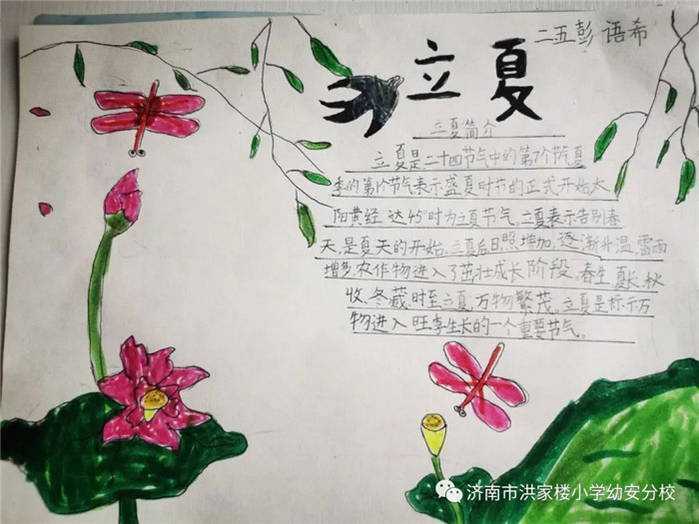 二五彭语希
立夏
立夏简介
立夏是二十四节气中的第7个节气,夏
季的第1个节气表示盛夏时节的正式开始太
阳黄经达45°时为立夏节气立夏表示告别春
天,是夏天的开始,立夏后日照增加,逐渐升温,雷雨
增多,农作物进入了茁壮成长阶段,春生,夏长,秋
收,冬藏,时至立夏,万物繁茂。立夏是标示万
物进入旺季生长的一个重要节气。
济南市洪家楼小学幼安分校